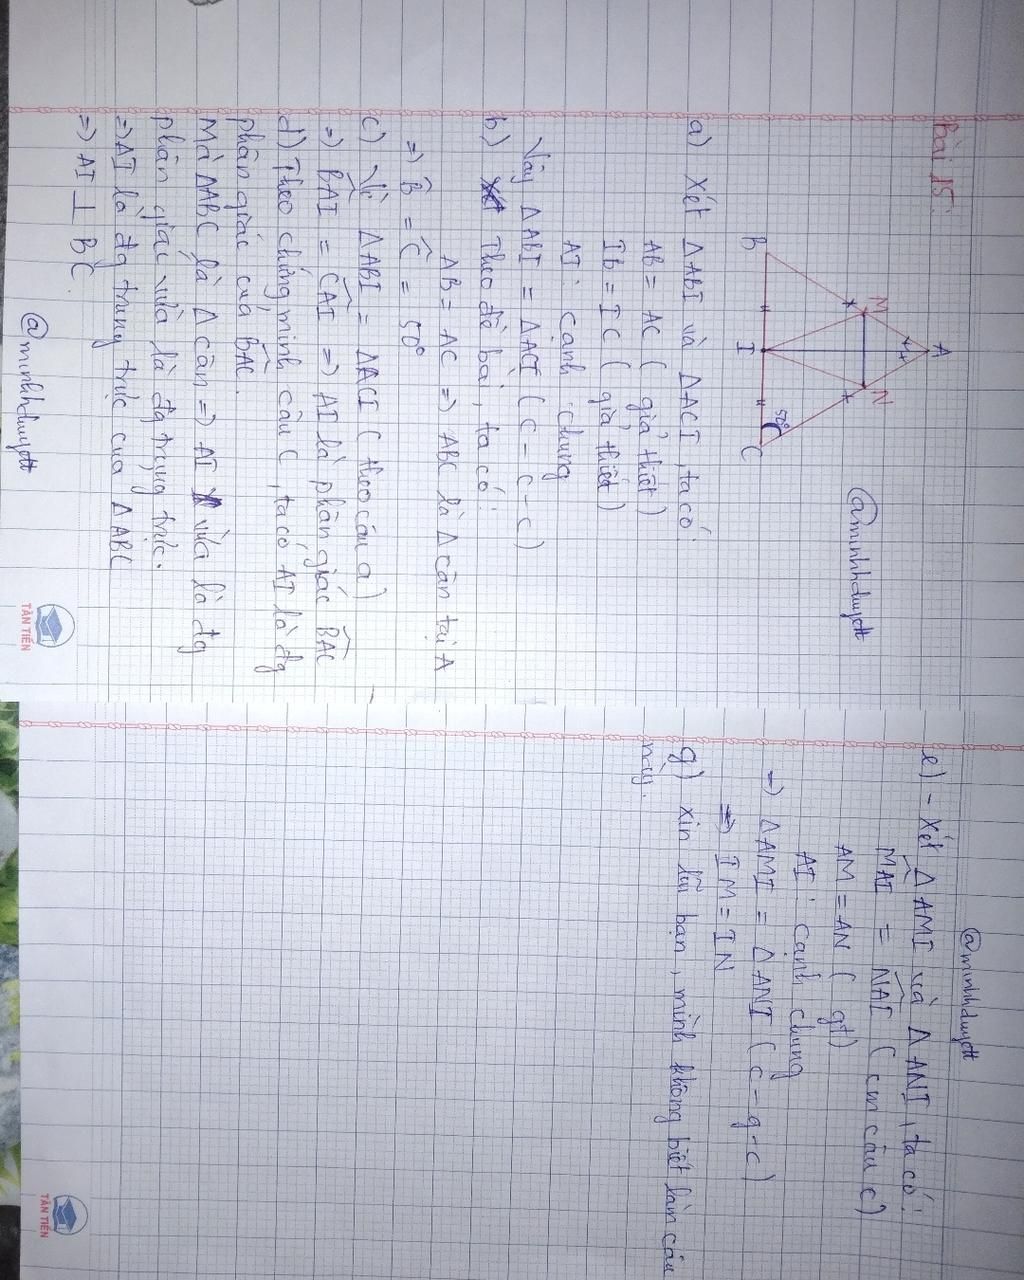 Bài 15:
A
M
N
B
I
C
50°
@minhhduyott
a) Xét Δ ABI và Δ ACI, ta có:
AB = AC (giả thiết)
IB = IC (giả thiết)
AI: cạnh chung
Vậy Δ ABI = Δ ACI (c - c - c)
b) Theo đề bài, ta có:
AB = AC => ABC là Δ cân tại A
=> B̂ = Ĉ = 50°
c) Vì Δ ABI = Δ ACI (theo câu a)
=> BÂI = CÂI => AI là phân giác BÂC
d) Theo chứng minh câu c, ta có AI là đg
phân giác của BÂC.
Mà Δ ABC là Δ cân => AI vừa là đg
phân giác vừa là đg trung trực.
=> AI là đg trung trực của Δ ABC
=> AI ⊥ BC.
@minhhduyott
TÂN TIẾN
@minhhduyott
e) - Xét Δ AMI và Δ ANI, ta có:
MÂI = NÂI (cm câu c)
AM = AN (gt)
AI: cạnh chung
=> Δ AMI = Δ ANI (c - g - c)
=> IM = IN
g) xin lỗi bạn, mình không biết làm câu
này.
TÂN TIẾN